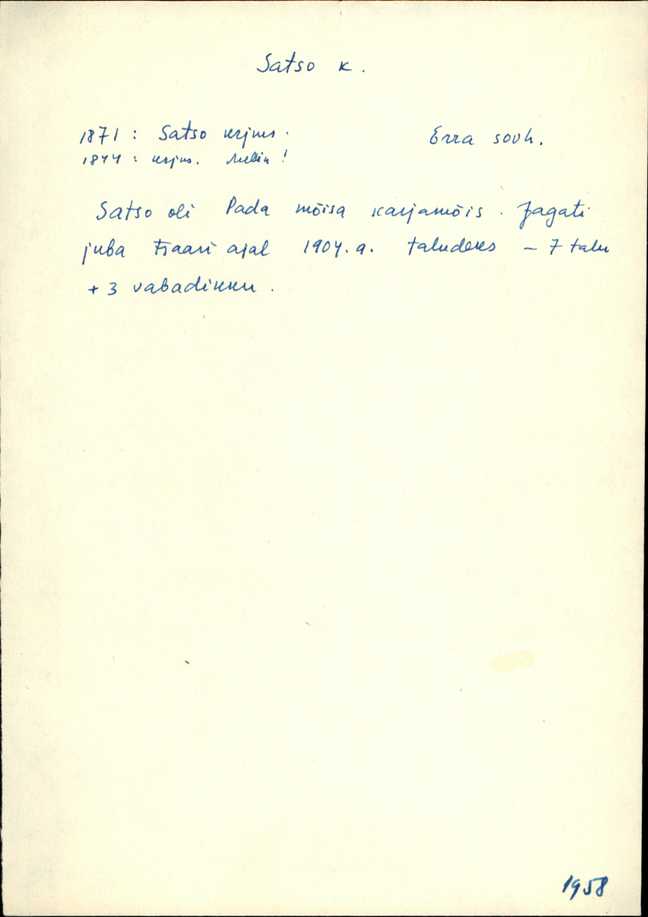 Satso k.
1871: Satso krjms. Erra sovh.
1844: krjm.
Satso oli Pada mõisa karjamõis. Jagati
juba tsaari ajal 1904.a. taludeks – 7 talu
+ 3 vabadikku.
1958